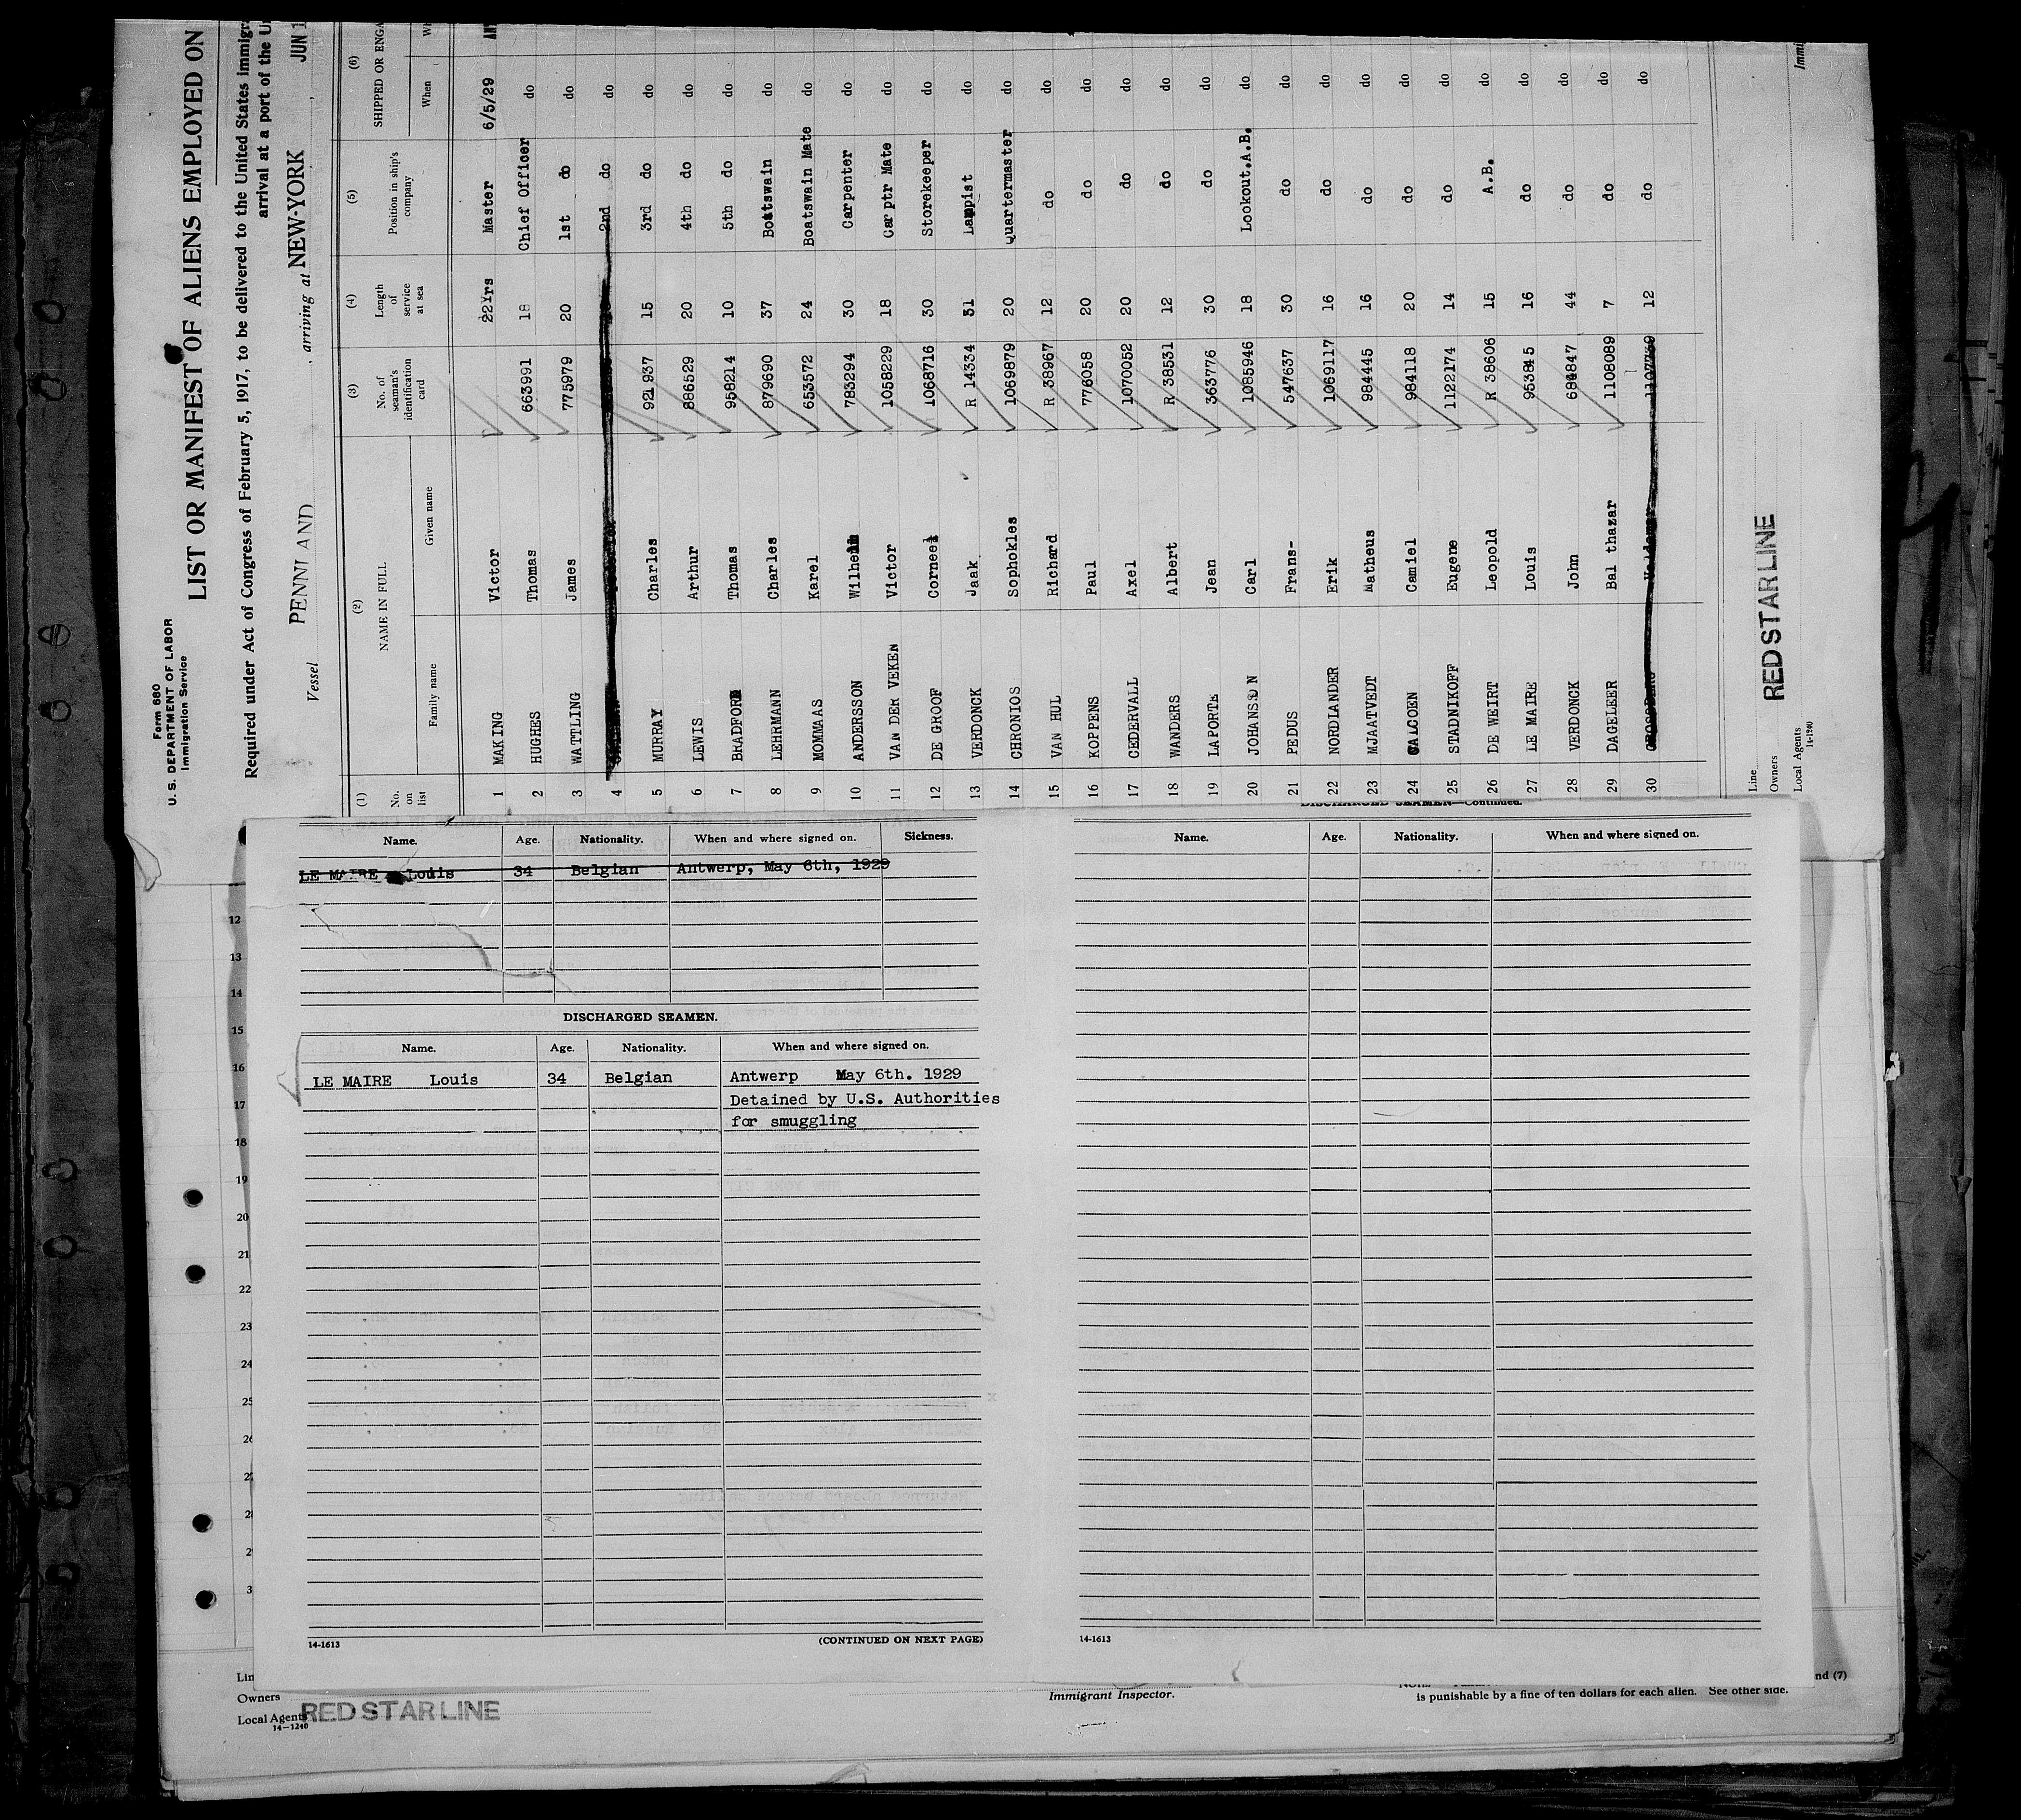 Form 680
U. S. DEPARTMENT OF LABOR
Immigration Service
LIST OR MANIFEST OF ALIENS EMPLOYED ON
Required under Act of Congress of February 5, 1917, to be delivered to the United States immigr
arrival at a port of the U
Vessel PENNLAND , arriving at NEW-YORK , JUN 1
(1) (2) (3) (4) (5) (6)
No. on list NAME IN FULL No. of seaman's identification card Length of service at sea Position in ship's company SHIPPED OR ENGA
Family name Given name When Wh
1 MAKING Victor 22Yrs Master 6/5/29 AN
2 HUGHES Thomas 663991 18 Chief Officer do
3 WATTLING James 775979 20 1st do do
4 2nd do do
5 MURRAY Charles 921937 15 3rd do do
6 LEWIS Arthur 886529 20 4th do do
7 BRADFORD Thomas 958214 10 5th do do
8 LEHRMANN Charles 879690 37 Boatswain do
9 MOMMAAS Karel 653572 24 Boatswain Mate do
10 ANDERSSON Wilhelm 783294 30 Carpenter do
11 VAN DER VEKEN Victor 1058229 18 Carptr Mate do
12 DE GROOF Corneel 1068716 30 Storekeeper do
13 VERDONCK Jaak R 14334 31 Lampist do
14 CHRONIOS Sophokles 1069879 20 Quartermaster do
15 VAN HUL Richard R 38967 12 do do
16 KOPPENS Paul 776058 20 do do
17 CEDERVALL Axel 1070052 20 do do
18 WANDERS Albert R 38531 12 do do
19 LAPORTE Jean 363776 30 do do
20 JOHANSSON Carl 1085946 18 Lookout.A.B. do
21 PEDUS Frans- 547637 30 do do
22 NORDLANDER Erik 1069117 16 do do
23 MJAATVEDT Matheus 984445 16 do do
24 CALCOEN Camiel 984118 20 do do
25 STADNIKOFF Eugene 1122174 14 do do
26 DE WEIRT Leopold R 38606 15 A.B. do
27 LE MAIRE Louis 953845 16 do do
28 VERDONCK John 684847 44 do do
29 DAGELEER Balthazar 1108089 7 do do
30 12 do do
Line
Owners RED STAR LINE
Local Agents
14-1240
Immi
Name. Age. Nationality. When and where signed on. Sickness.
LE MAIRE Louis 34 Belgian Antwerp, May 6th, 1929
DISCHARGED SEAMEN.
Name. Age. Nationality. When and where signed on.
LE MAIRE Louis 34 Belgian Antwerp May 6th. 1929
Detained by U.S. Authorities
for smuggling
14-1613 (CONTINUED ON NEXT PAGE)
DISCHARGED SEAMEN—Continued.
Name. Age. Nationality. When and where signed on.
14-1613
12
13
14
15
16
17
18
19
20
21
22
23
24
25
Lin
Owners
Local Agents RED STAR LINE
14-1240
Immigrant Inspector.
nd (7)
is punishable by a fine of ten dollars for each alien. See other side.